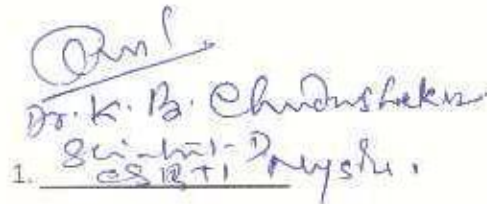 Dr. K. B. Chandrashekar.
Scientist-D
1. CSRTI Mysuru.